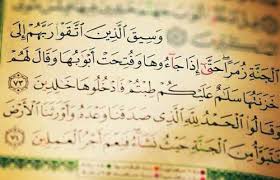 وَسِيقَ ٱلَّذِينَ ٱتَّقَوْا۟ رَبَّهُمْ إِلَى
ٱلْجَنَّةِ زُمَرًا حَتَّىٰٓ إِذَا جَآءُوهَا وَفُتِحَتْ أَبْوَٰبُهَا وَقَالَ لَهُمْ
خَزَنَتُهَا سَلَٰمٌ عَلَيْكُمْ طِبْتُمْ فَٱدْخُلُوهَا خَٰلِدِينَ ٧٣
وَقَالُوا۟ ٱلْحَمْدُ لِلَّهِ ٱلَّذِى صَدَقَنَا وَعْدَهُۥ وَأَوْرَثَنَا ٱلْأَرْضَ
نَتَبَوَّأُ مِنَ ٱلْجَنَّةِ حَيْثُ نَشَآءُ فَنِعْمَ أَجْرُ ٱلْعَٰمِلِينَ